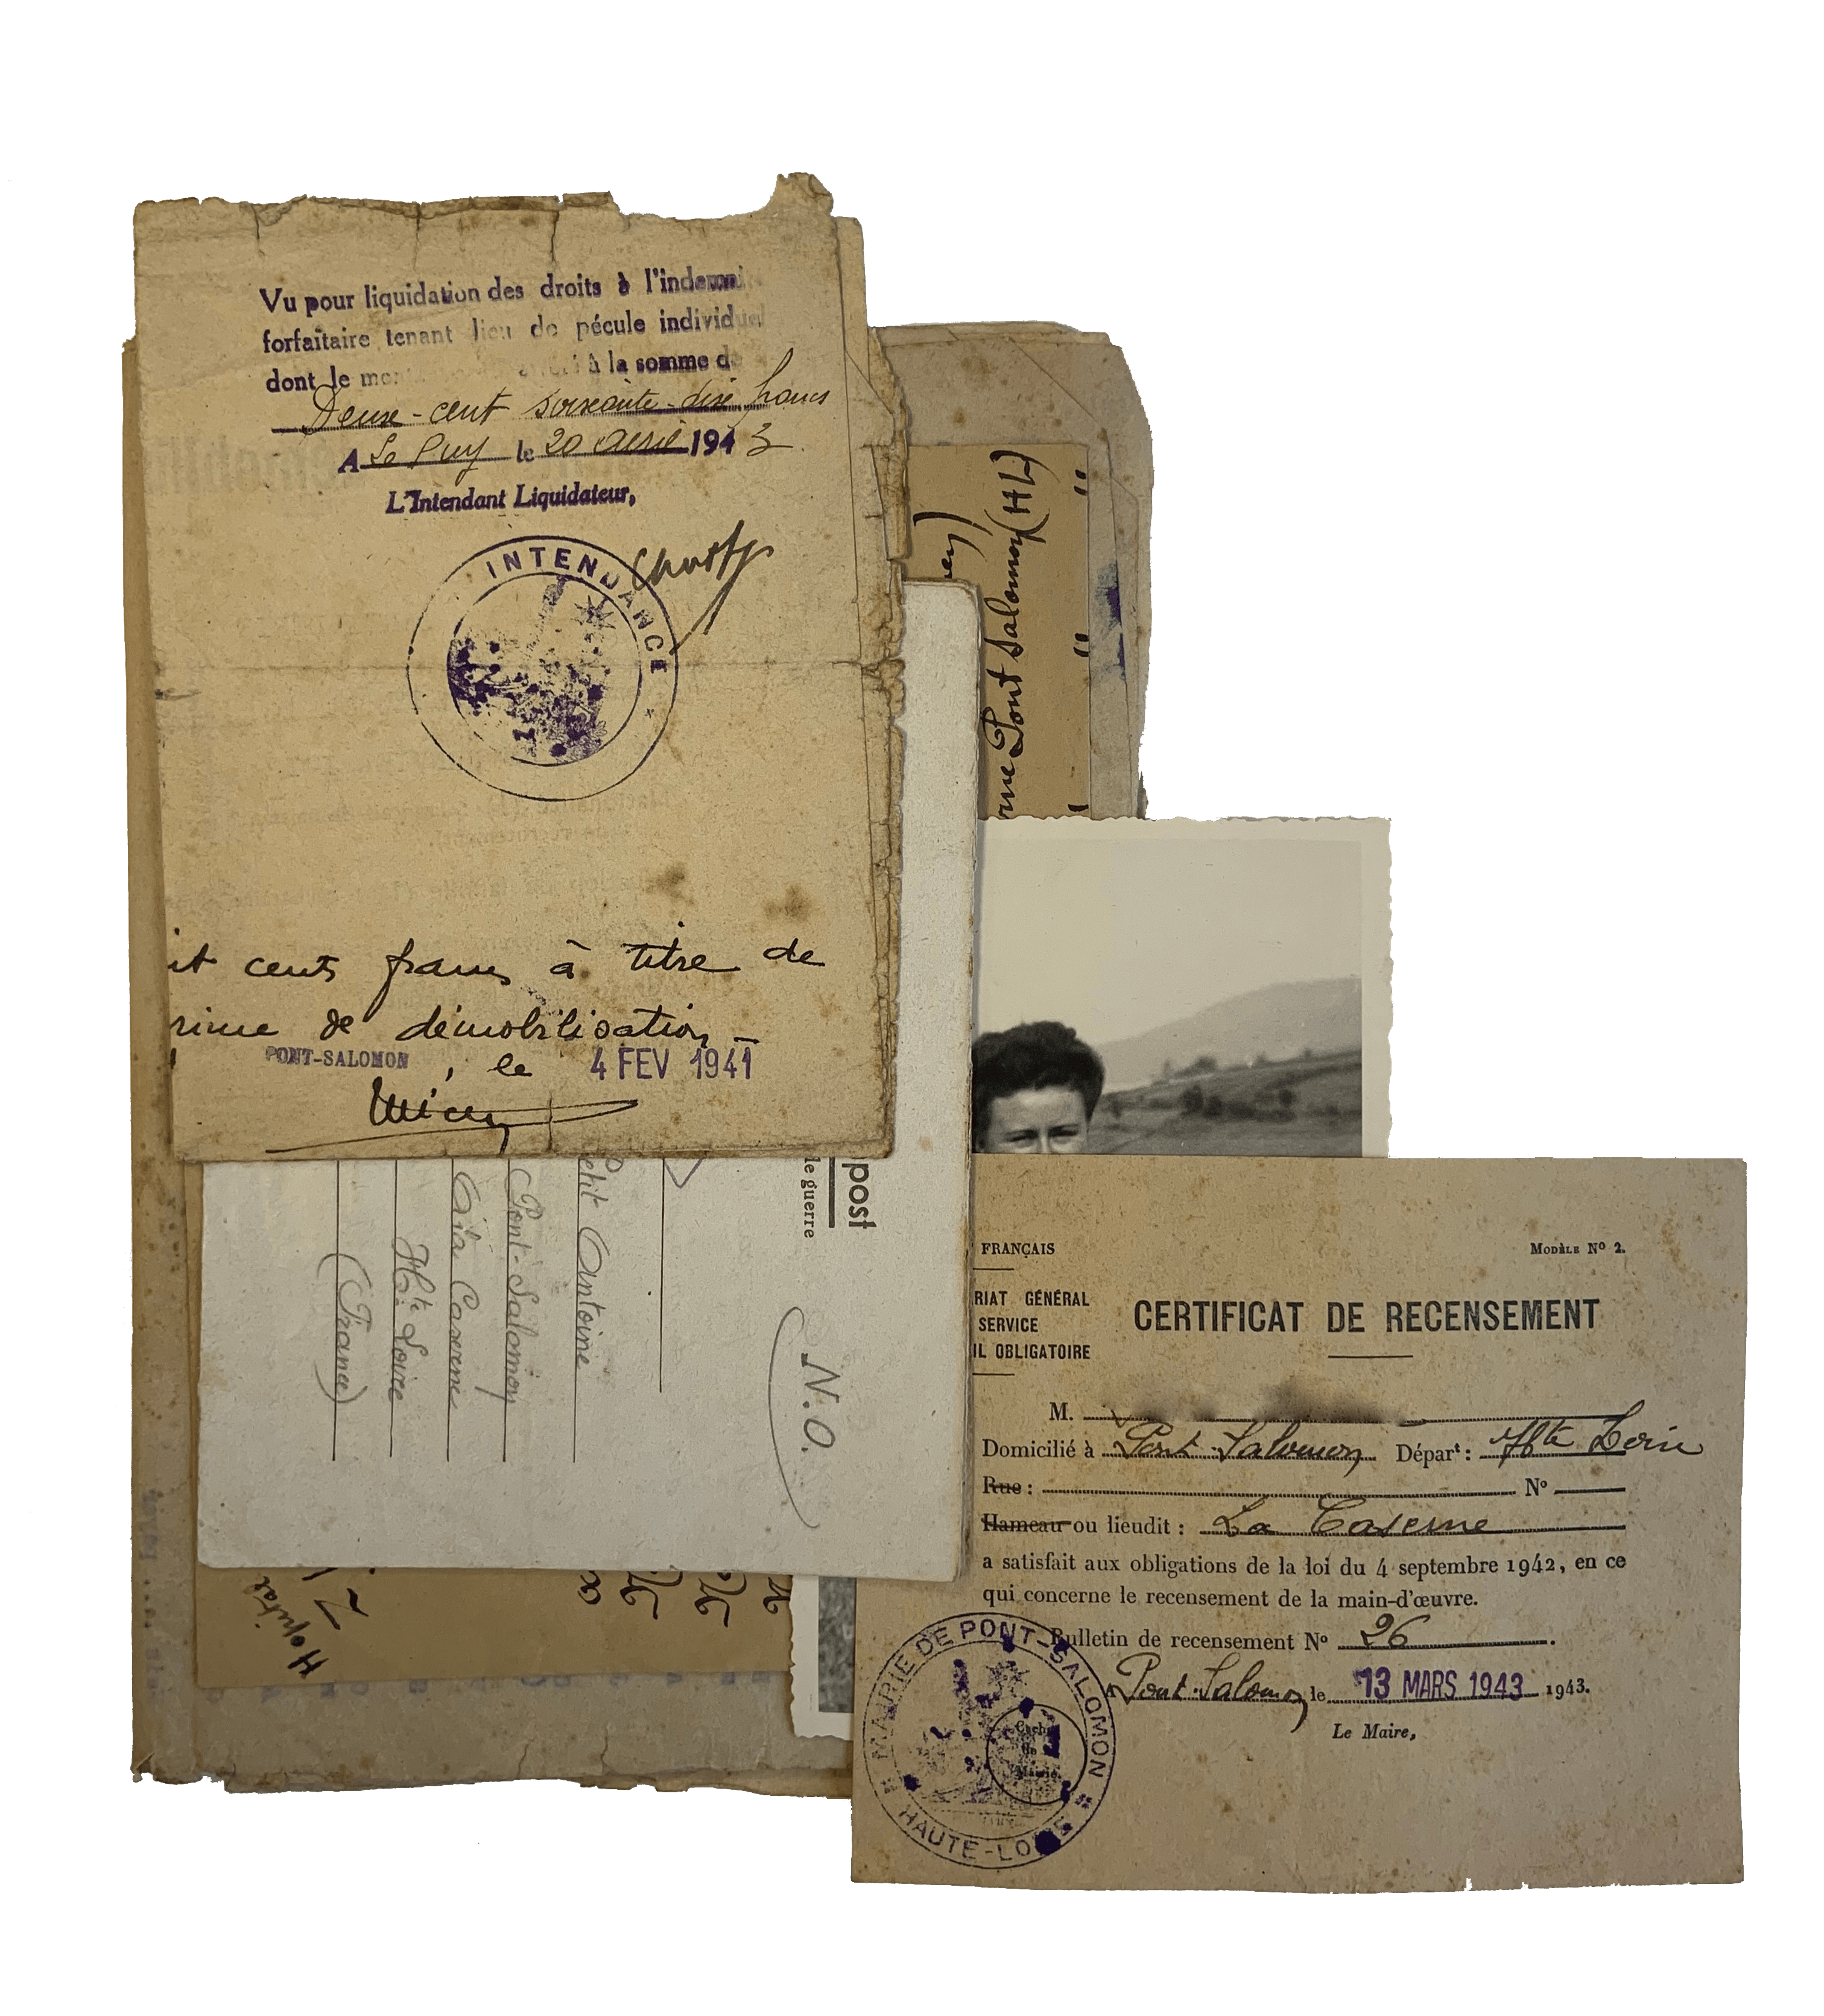 Vu pour liquidation des droits à l'indemni
forfaitaire tenant lieu de pécule individuel
dont le à la somme de
Deux-cent soixante-dix francs
A Le Puy le 20 avril 1943
L'Intendant Liquidateur,
INTENDANCE
it cents francs à titre de
rime de démobilisation
PONT-SALOMON, le 4 FEV 1941
rne Pont Salomon (HL)
" "
post
le guerre
N.O.
etit Antoine
Pont-Salomon
Caserne
Hte Loire
(France)
Hopital
FRANÇAIS
MODÈLE Nº 2.
RIAT GÉNÉRAL
SERVICE
IL OBLIGATOIRE
CERTIFICAT DE RECENSEMENT
M.
Domicilié à Pont-Salomon Départ : Hte Loire
Rue : Nº
Hameau ou lieudit : La Caserne
a satisfait aux obligations de la loi du 4 septembre 1942, en ce
qui concerne le recensement de la main-d'œuvre.
Bulletin de recensement Nº 26.
A Pont-Salomon le 13 MARS 1943 1943.
Le Maire,
MAIRIE DE PONT-SALOMON
HAUTE-LOIRE